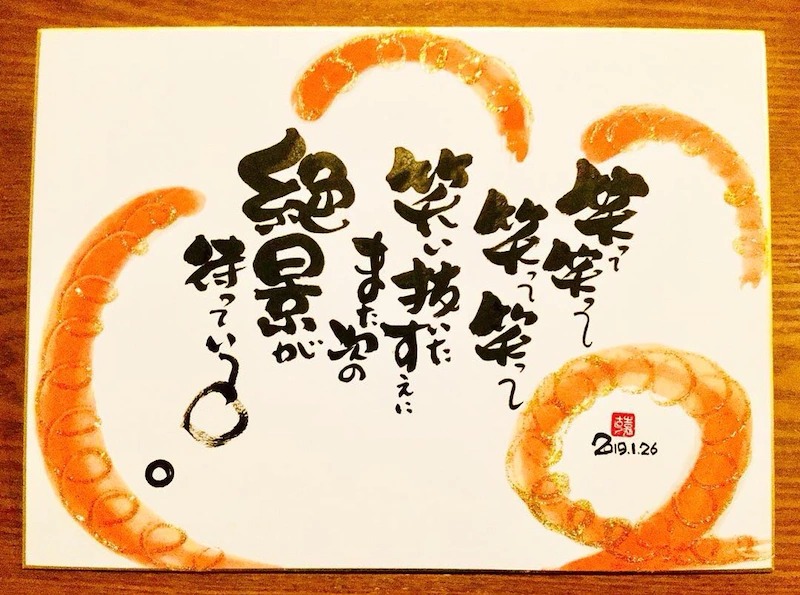 笑って笑って
笑って笑って
笑い抜いたすえに
また次の
絶景が
待っている。
2019.1.26